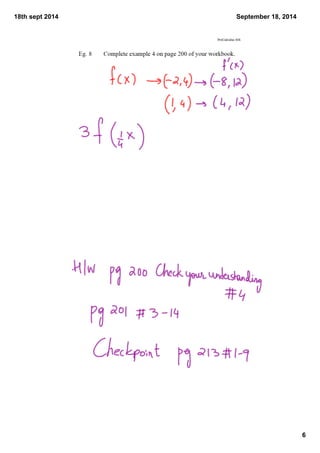 18th sept 2014
September 18, 2014
PreCalculus 30S
Eg. 8 Complete example 4 on page 200 of your workbook.
f'(x)
f(x) → (-2,4) → (-8,12)
(1,4) → (4,12)
3f(1/4 x)
H/W pg 200 Check your understanding
#4
pg 201 #3-14
Checkpoint pg 213 #1-9
6